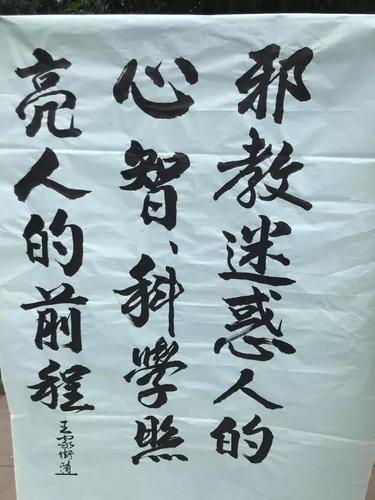 邪教迷惑人的
心智、科學照
亮人的前程
王家街道